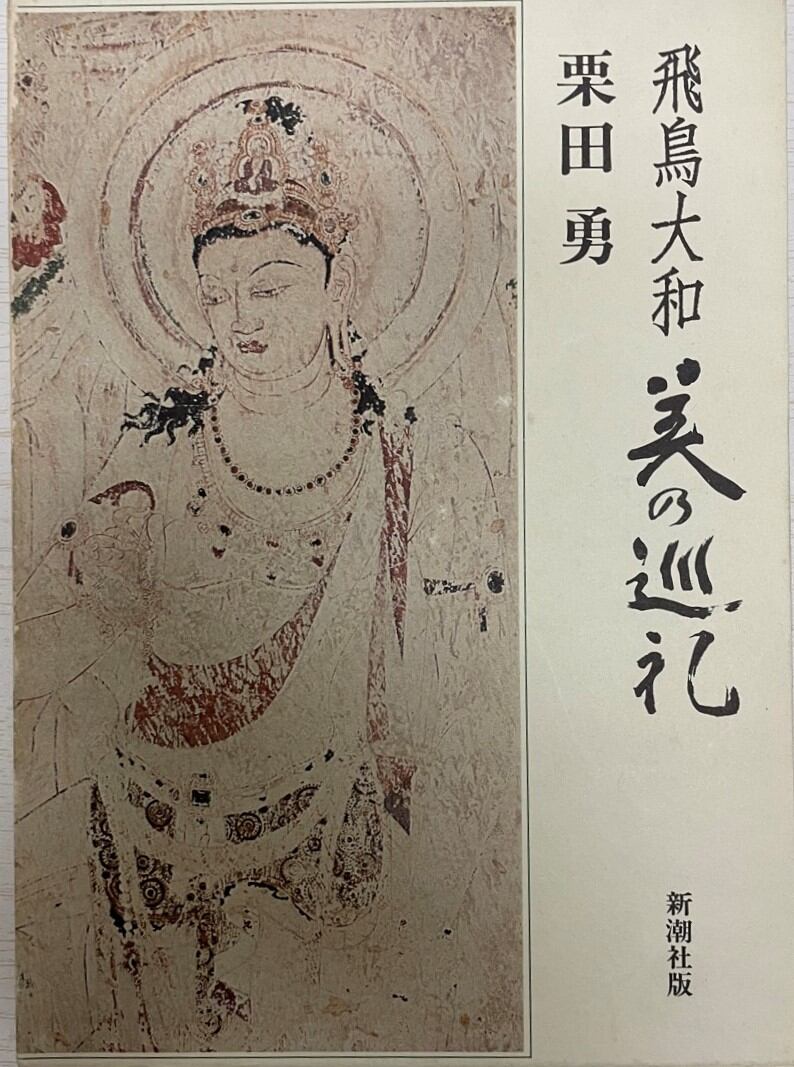 飛鳥大和 美の巡礼
栗田 勇
新潮社版